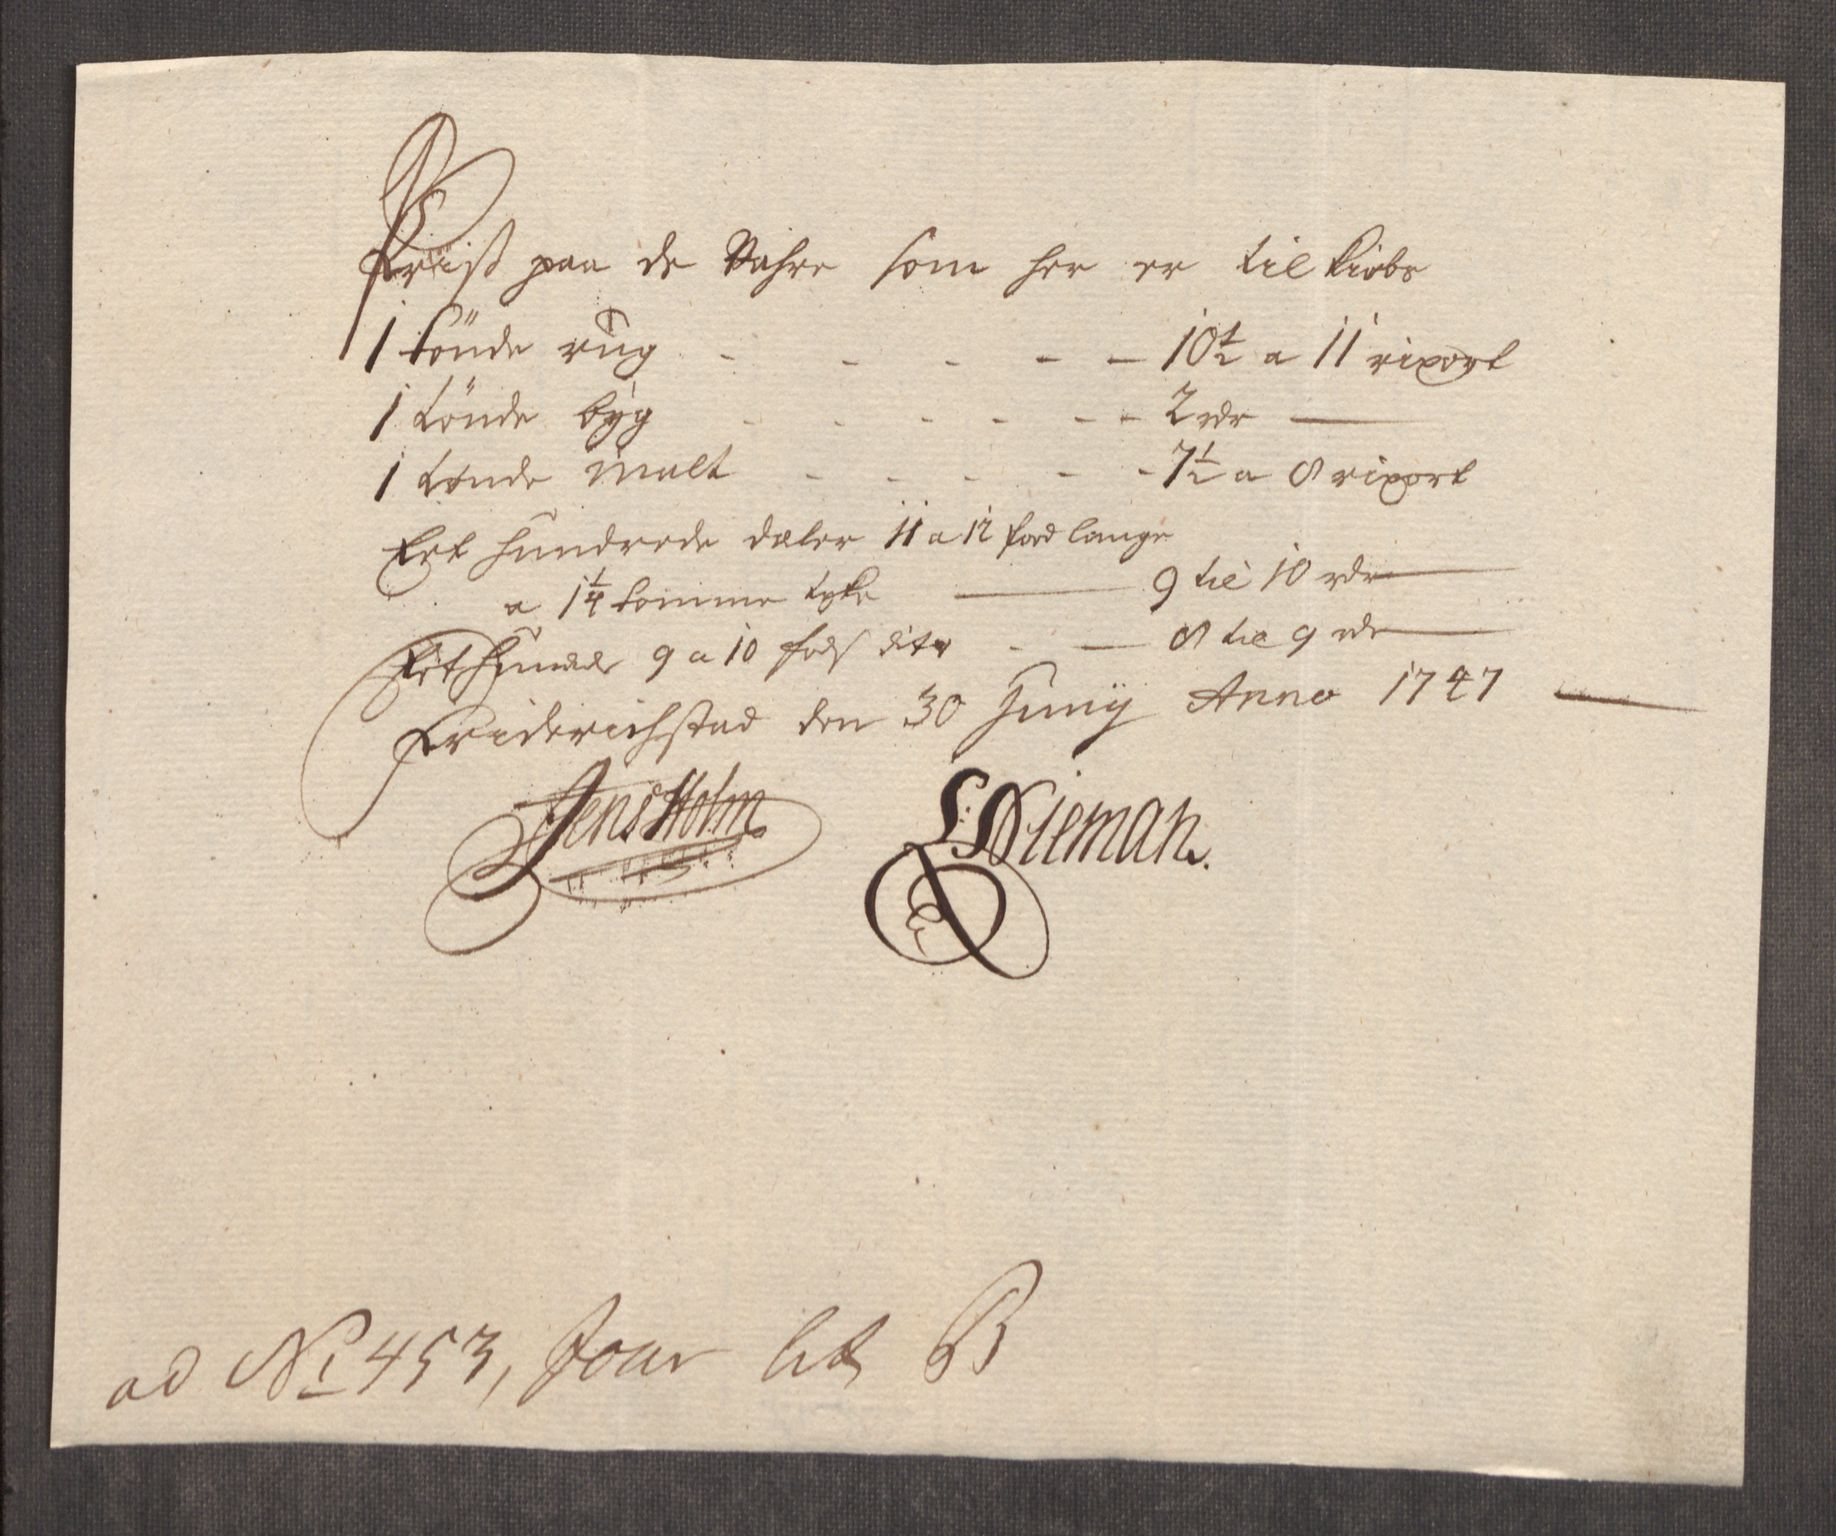 Priiss paa de Vahre som her er til kiøbs
1 tönde rug - - - - - 10 1/2 a 11 rixort
1 tönde byg - - - - - - 2 rdr —
1 tønde malt - - - - - 7 1/2 a 8 rixort
Eet hundrede dæler 11 a 12 food lange
a 1 1/4 tomme tyke — 9 til 10 rdr —
Eet hundrede 9 a 10 fods dito - — 8 til 9 rdr —
Friderichstad den 30 Junij Anno 1747 —
Jens Holm S: Nieman.
ad No 453, Jour lit B